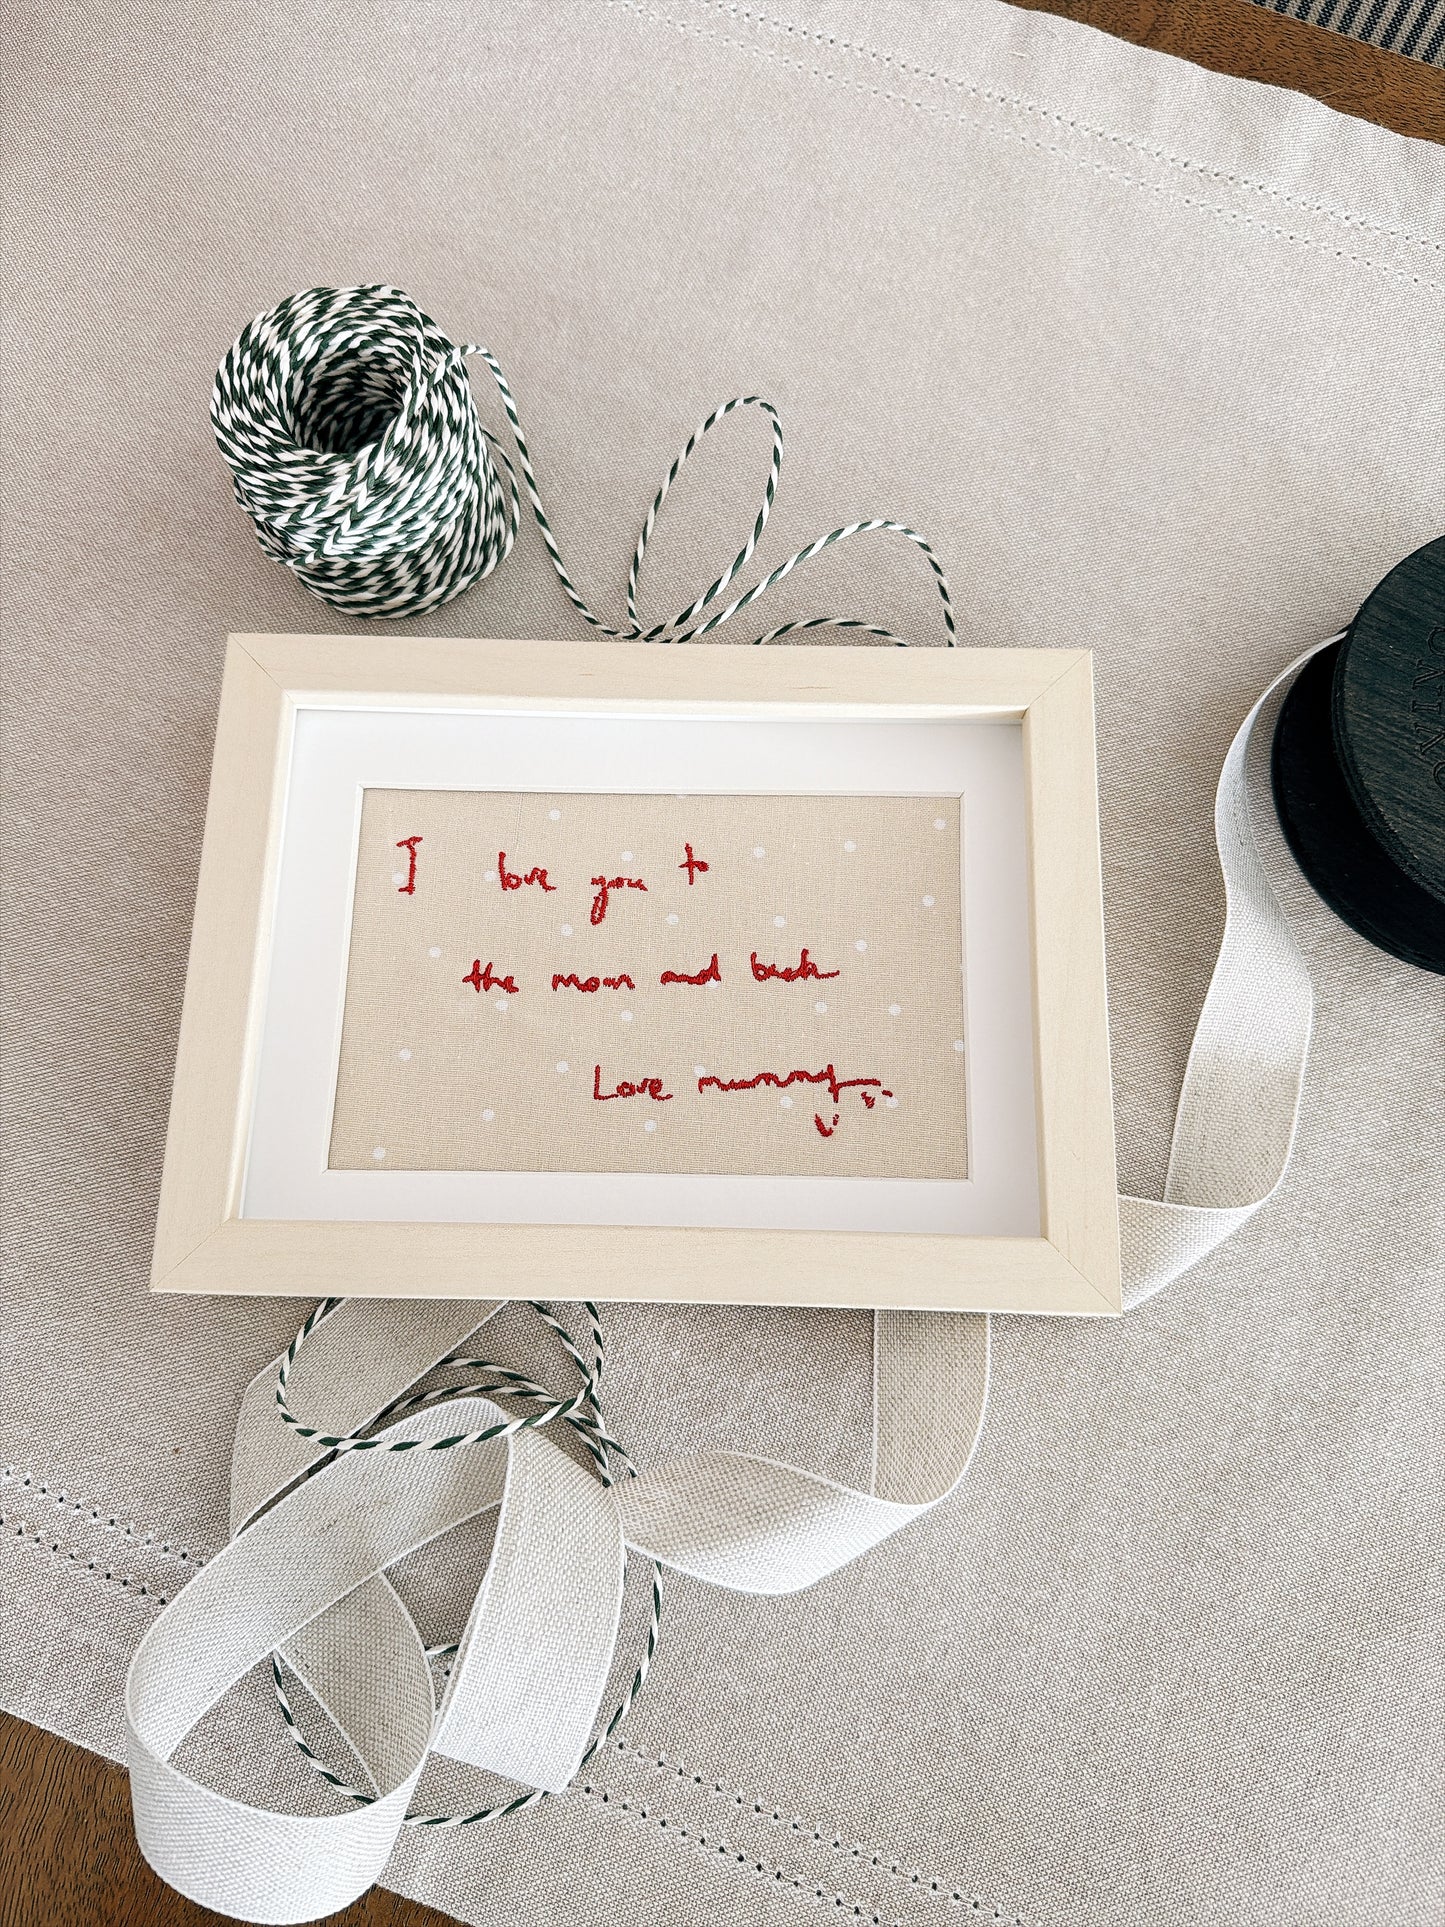 I love you to
the moon and back
Love mummy